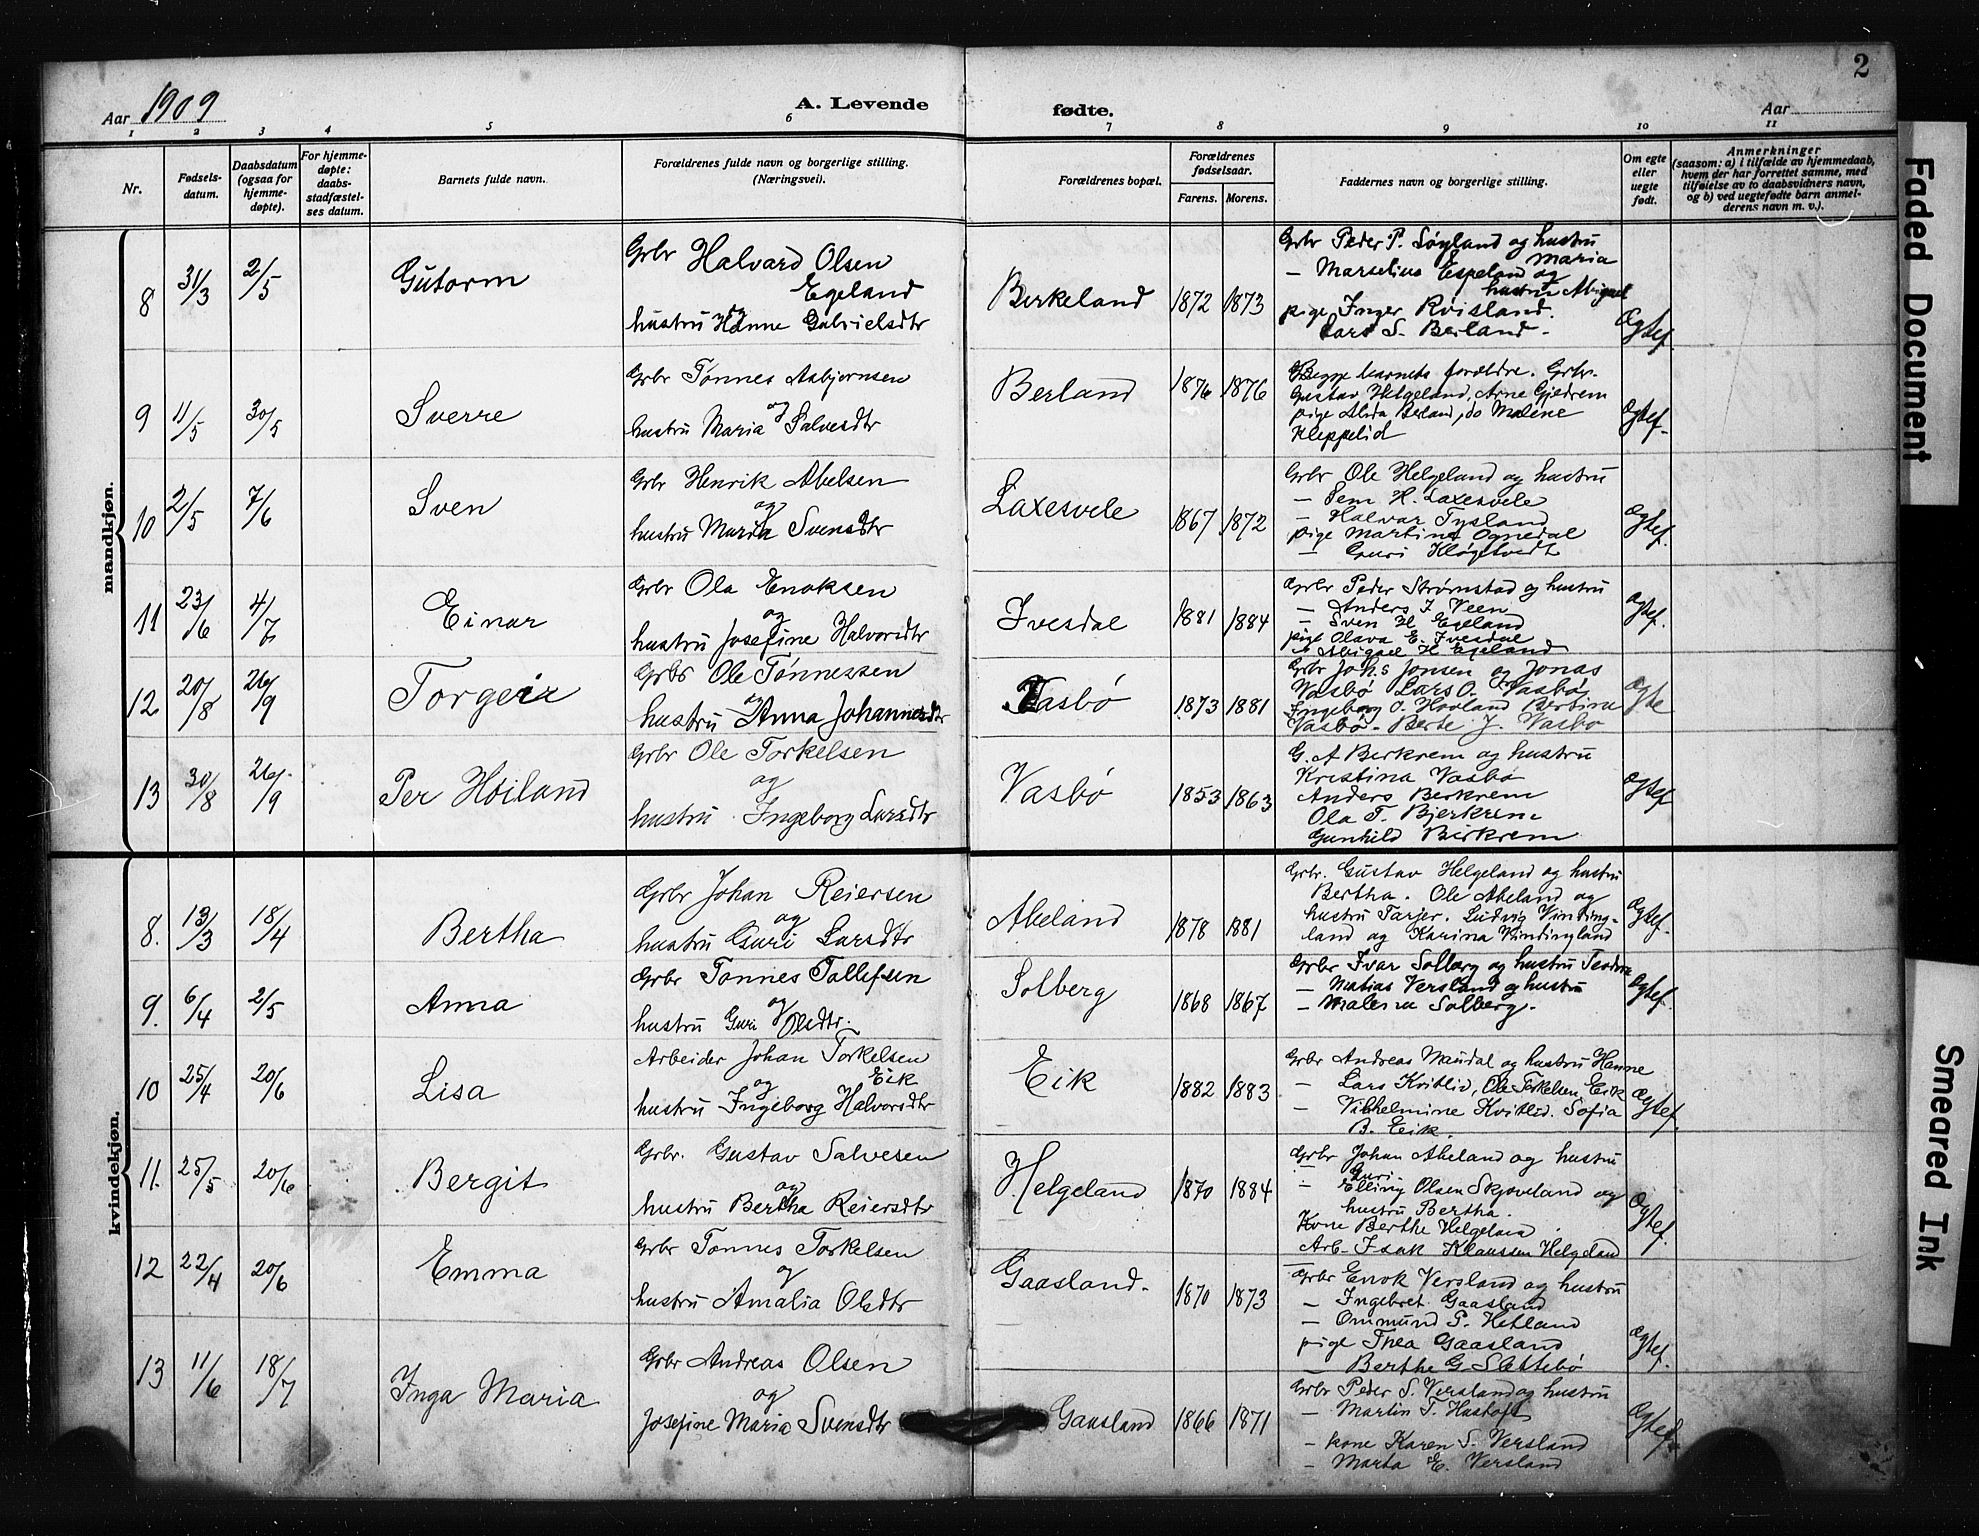 2
Aar 1909
A. Levende
fødte.
Aar
1 2 3 4 5 6 7 8 9 10 11
Nr.
Fødsels-
datum.
Daabsdatum
(ogsaa for
hjemme-
døpte).
For hjemme-
døpte:
daabs-
stadfæstel-
ses datum.
Barnets fulde navn.
Forældrenes fulde navn og borgerlige stilling.
(Næringsvei).
Forældrenes bopæl.
Forældrenes
fødselsaar.
Farens. Morens.
Faddernes navn og borgerlige stilling.
Om egte
eller
uegte
født.
Anmerkninger
(saasom: a) i tilfælde av hjemmedaab,
hvem der har forrettet samme, med
tilføielse av to daabsvidners navn,
og b) ved uegtefødte barn anmel-
derens navn m. v.).
mandkjøn.
8 31/3 2/5 Gutorm
Grbr Halvard Olsen
Egeland
og
hustru Hanne Gabrielsdtr
Birkeland 1872 1873
Grbr Peder P. Løyland og hustru
Maria
— Marselius Espeland og
hustru Abigael
pige Inger Kvisland.
Lars S. Berland.
Ægtef.
9 11/5 30/5 Sverre
Grbr Tønnes Asbjornsen
og
hustru Maria Salvesdtr
Berland 1876 1876
Begge barnets forældre. Grbr.
Gustav Helgeland, Arne Gjedrem
pige Alida Berland, do Malene
Kleppelid
Ægtef.
10 2/5 7/6 Sven
Grbr Henrik Abelsen
og
hustru Maria Svensdtr
Laxesvele 1867 1872
Grbr Ole Helgeland og hustru
— Sem H. Laxesvele
— Halvar Tysland
pige Martine Ognedal
— Guri Kløgetvedt
Ægtef.
11 23/6 4/7 Einar
Grbr Ola Enoksen
og
hustru Josefine Halvorsdtr
Ivesdal 1881 1884
Grbr Peder Strømstad og hustru
— Anders I. Veen
— Sven H Egeland
pige Olava E. Ivesdal
— Abigael H Egeland
Ægtef.
12 20/8 26/9 Torgeir
Grbr Ole Tønnessen
og
hustru Anna Johannesdtr
Vasbø 1873 1881
Grbr Johs Jonsen og Jonas
Vasbø Lars O. Vasbø,
Ingeborg O. Hovland Bertina
Vasbø - Berte J. Vasbø
Ægte
13 30/8 26/9 Per Høiland
Grbr Ole Torkelsen
og
hustru Ingeborg Larsdtr
Vasbø 1853 1863
G. A Birkrem og hustru
Kristina Vasbø
Anders Berkrem
Ola T. Bjerkrem
Gunhild Birkrem
Ægtef
kvindekjøn.
8. 13/3 18/4 Bertha
Grbr Johan Reiersen
og
hustru Guri Larsdtr
Abeland 1878 1881
Grbr. Gustav Helgeland og hustru
Bertha. Ole Abeland og
hustru Tarjer. Ludvig Vinding-
land og Karina Vindingland
Ægtef.
9. 6/4 2/5 Anna
Grbr Tønnes Tollefsen
og
hustru Guri Olsdtr.
Solberg 1868 1867
Grbr Ivar Solberg og hustru Teodora
— Matias Versland og hustru
— Malena Solberg.
Ægtef.
10 25/4 20/6 Lisa
Arbeider Johan Torkelsen
Eik
og
hustru Ingeborg Halvorsdtr
Eik 1882 1883
Grbr Andreas Maudal og hustru Hanne
— Lars Kvitlid, Ole Torkelsen Eik
— Vilhelmine Kvitlid. Sofia
B. Eik.
Ægtef.
11. 25/5 20/6 Bergit
Grbr. Gustav Salvesen
og
hustru Bertha Reiersdtr
Helgeland 1870 1884
Grbr Johan Abeland og hustru
Guri
— Elling Olsen Skjoveland og
hustru Bertha.
Kone Berthe Helgeland
Arb. Isak Klaussen Helgeland
Ægtef.
12 22/4 20/6 Emma
Grbr Tønnes Torkelsen
og
hustru Amalia Olsdtr
Gaasland. 1870 1873
Grbr Enok Versland og hustru
— Ingebret Gaasland
— Ommund P. Hetland
pige Thea Gaasland
— Berthe G. Slettebø
Ægtef.
13 11/6 18/7 Inga Maria
Grbr Andreas Olsen
og
Josefine Maria Svensdtr
Gaasland 1866 1871
Grbr Peder S. Versland og hustru
— Martin T.
— kone Karen S. Versland
— Marta E. Versland
Ægtef.
Faded Document
Smeared Ink